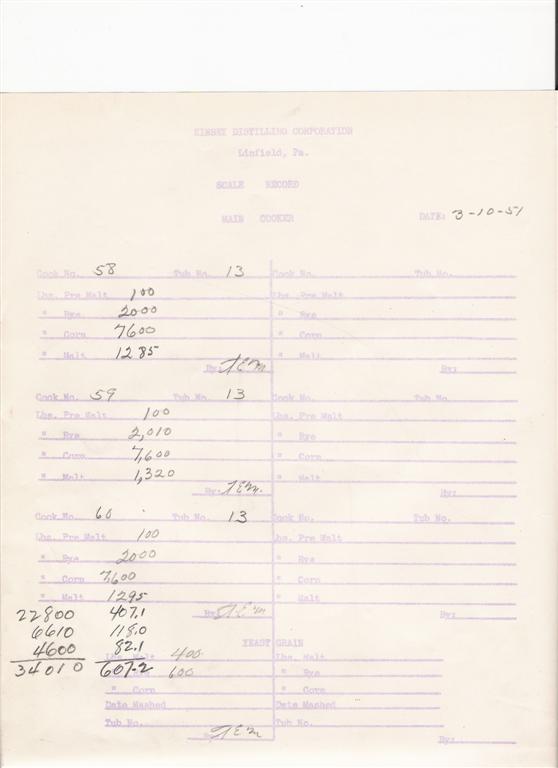 KINSEY DISTILLING CORPORATION
Linfield, Pa.
SCALE RECORD
MAIN COOKER
DATE: 3-10-51
Cook No. 58 Tub No. 13 Cook No. Tub No.
Lbs. Pre Malt 100 Lbs. Pre Malt
" Rye 2000 " Rye
" Corn 7600 " Corn
" Malt 1285 " Malt
By: JEM By:
Cook No. 59 Tub No. 13 Cook No. Tub No.
Lbs. Pre Malt 100 Lbs. Pre Malt
" Rye 2,010 " Rye
" Corn 7,600 " Corn
" Malt 1,320 " Malt
By: JEM. By:
Cook No. 60 Tub No. 13 Cook No. Tub No.
Lbs. Pre Malt 100 Lbs. Pre Malt
" Rye 2000 " Rye
" Corn 7,600 " Corn
" Malt 1295 " Malt
22800 407.1 By: JEM By:
6610 118.0
4600 82.1 YEAST GRAIN
34010 607.2
Lbs. Malt 400 Lbs. Malt
" Rye 600 " Rye
" Corn " Corn
Date Mashed Date Mashed
Tub No. Tub No.
By: JEM By: